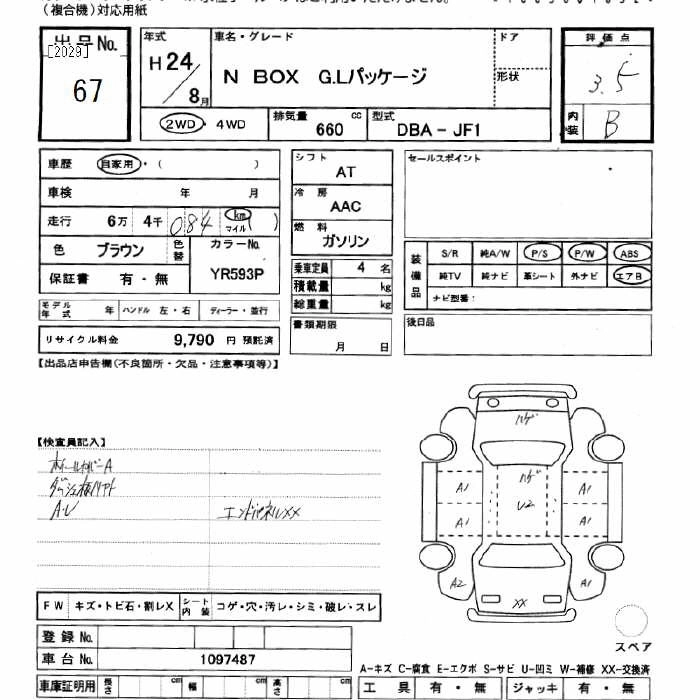 (複合機)対応用紙
出品No.
[2029]
67
年式
H24/8月
車名・グレード
N BOX G.Lパッケージ
ドア
形状
評価点
3.5
内装
B
2WD・4WD
排気量 660 cc
型式 DBA-JF1
車歴 自家用・( )
車検 年 月
走行 6万 4千 084 (km マイル)
色 ブラウン 色替
カラーNo. YR593P
保証書 有・無
モデル年式 年 ハンドル 左・右 ディーラー・並行
リサイクル料金 9,790 円 預託済
シフト
AT
冷房
AAC
燃料
ガソリン
乗車定員 4 名
積載量 kg
総重量 kg
書類期限
月 日
セールスポイント
装備品
S/R 純A/W P/S P/W ABS
純TV 純ナビ 革シート 外ナビ エアB
ナビ型番:
後日品
【出品店申告欄(不良箇所・欠品・注意事項等)】
【検査員記入】
A・U
エンドパネルXX
ハゲ
ハゲ
U2
A1 A1
A1 A1
A2 A1
XX
スペア
FW キズ・トビ石・割レX シート内装 コゲ・穴・汚レ・シミ・破レ・スレ
登録No.
車台No. 1097487
車庫証明用 長さ cm 幅 cm 高さ cm
A-キズ C-腐食 E-エクボ S-サビ U-凹ミ W-補修 XX-交換済
工具 有・無 ジャッキ 有・無